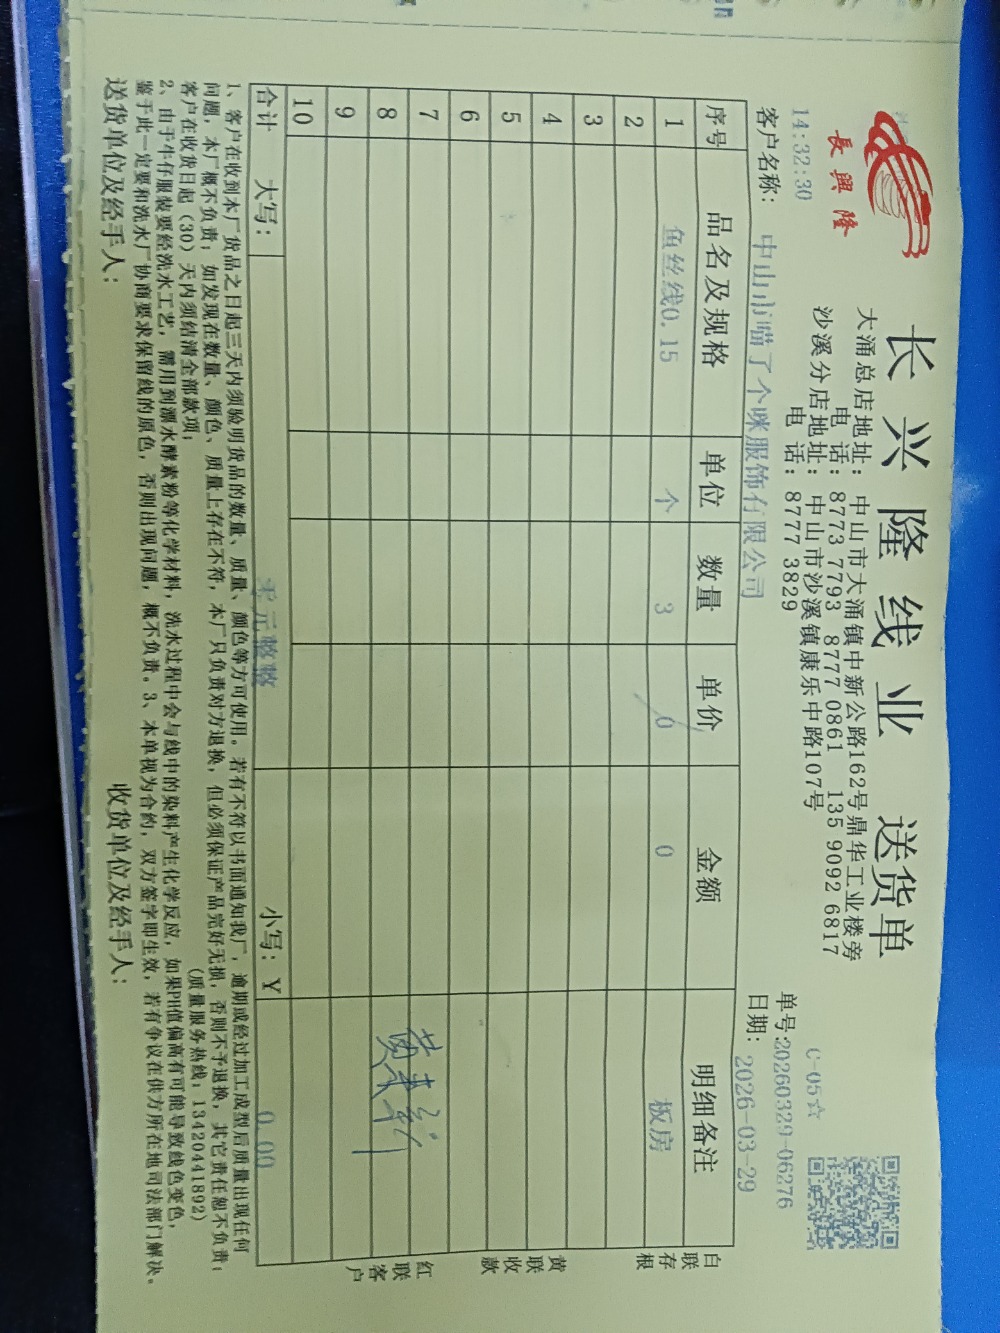 長興隆
长兴隆线业 送货单
大涌总店地址：中山市大涌镇中新公路162号鼎华工业楼旁
电话：8773 7793 8777 0861 135 9092 6817
沙溪分店地址：中山市沙溪镇康乐中路107号
电话：8777 3829
C-05☆
14:32:30
单号:20260329-06276
客户名称：中山市喵了个咪服饰有限公司
日期：2026-03-29
序号 品名及规格 单位 数量 单价 金额 明细备注
1 鱼丝线0.15 个 3 0 0 板房
2
3
4
5
6
7
8
9
10
合计 大写：零元整整 小写：¥ 0.00
白联存根
黄联收款
红联客户
1、客户在收到本厂货品之日起三天内须验明货品的数量、质量、颜色等方可使用。若有不符以书面通知我厂，逾期或经过加工成型后质量出现任何
问题，本厂概不负责；如发现在数量、颜色、质量上存在不符，本厂只负责对方退换，但必须保证产品完好无损，否则不予退换，其它责任恕不负责；
客户在收货日起（30）天内须结清全部款项；
(质量服务热线：13420441892)
2、由于牛仔服装要经洗水工艺，需用到漂水酵素粉等化学材料，洗水过程中会与线中的染料产生化学反应，如果PH值偏高有可能导致线色变色，
鉴于此一定要和洗水厂协商要求保留线的原色，否则出现问题，概不负责。3、本单视为合约，双方签字即生效，若有争议在供方所在地司法部门解决。
送货单位及经手人：
收货单位及经手人：